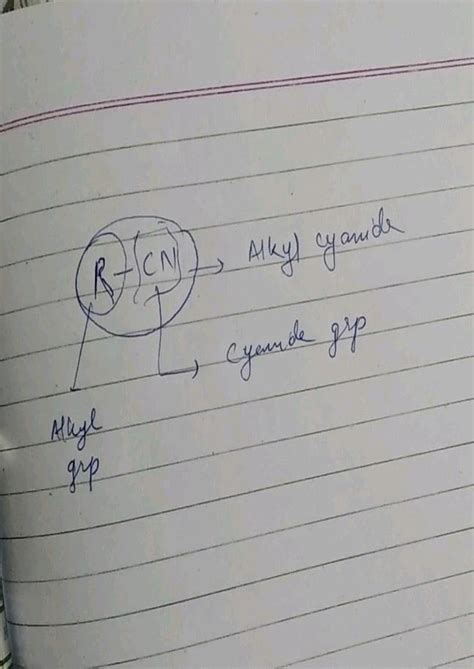 R-(CN) → Alkyl cyanide
Cyanide grp
Alkyl
grp